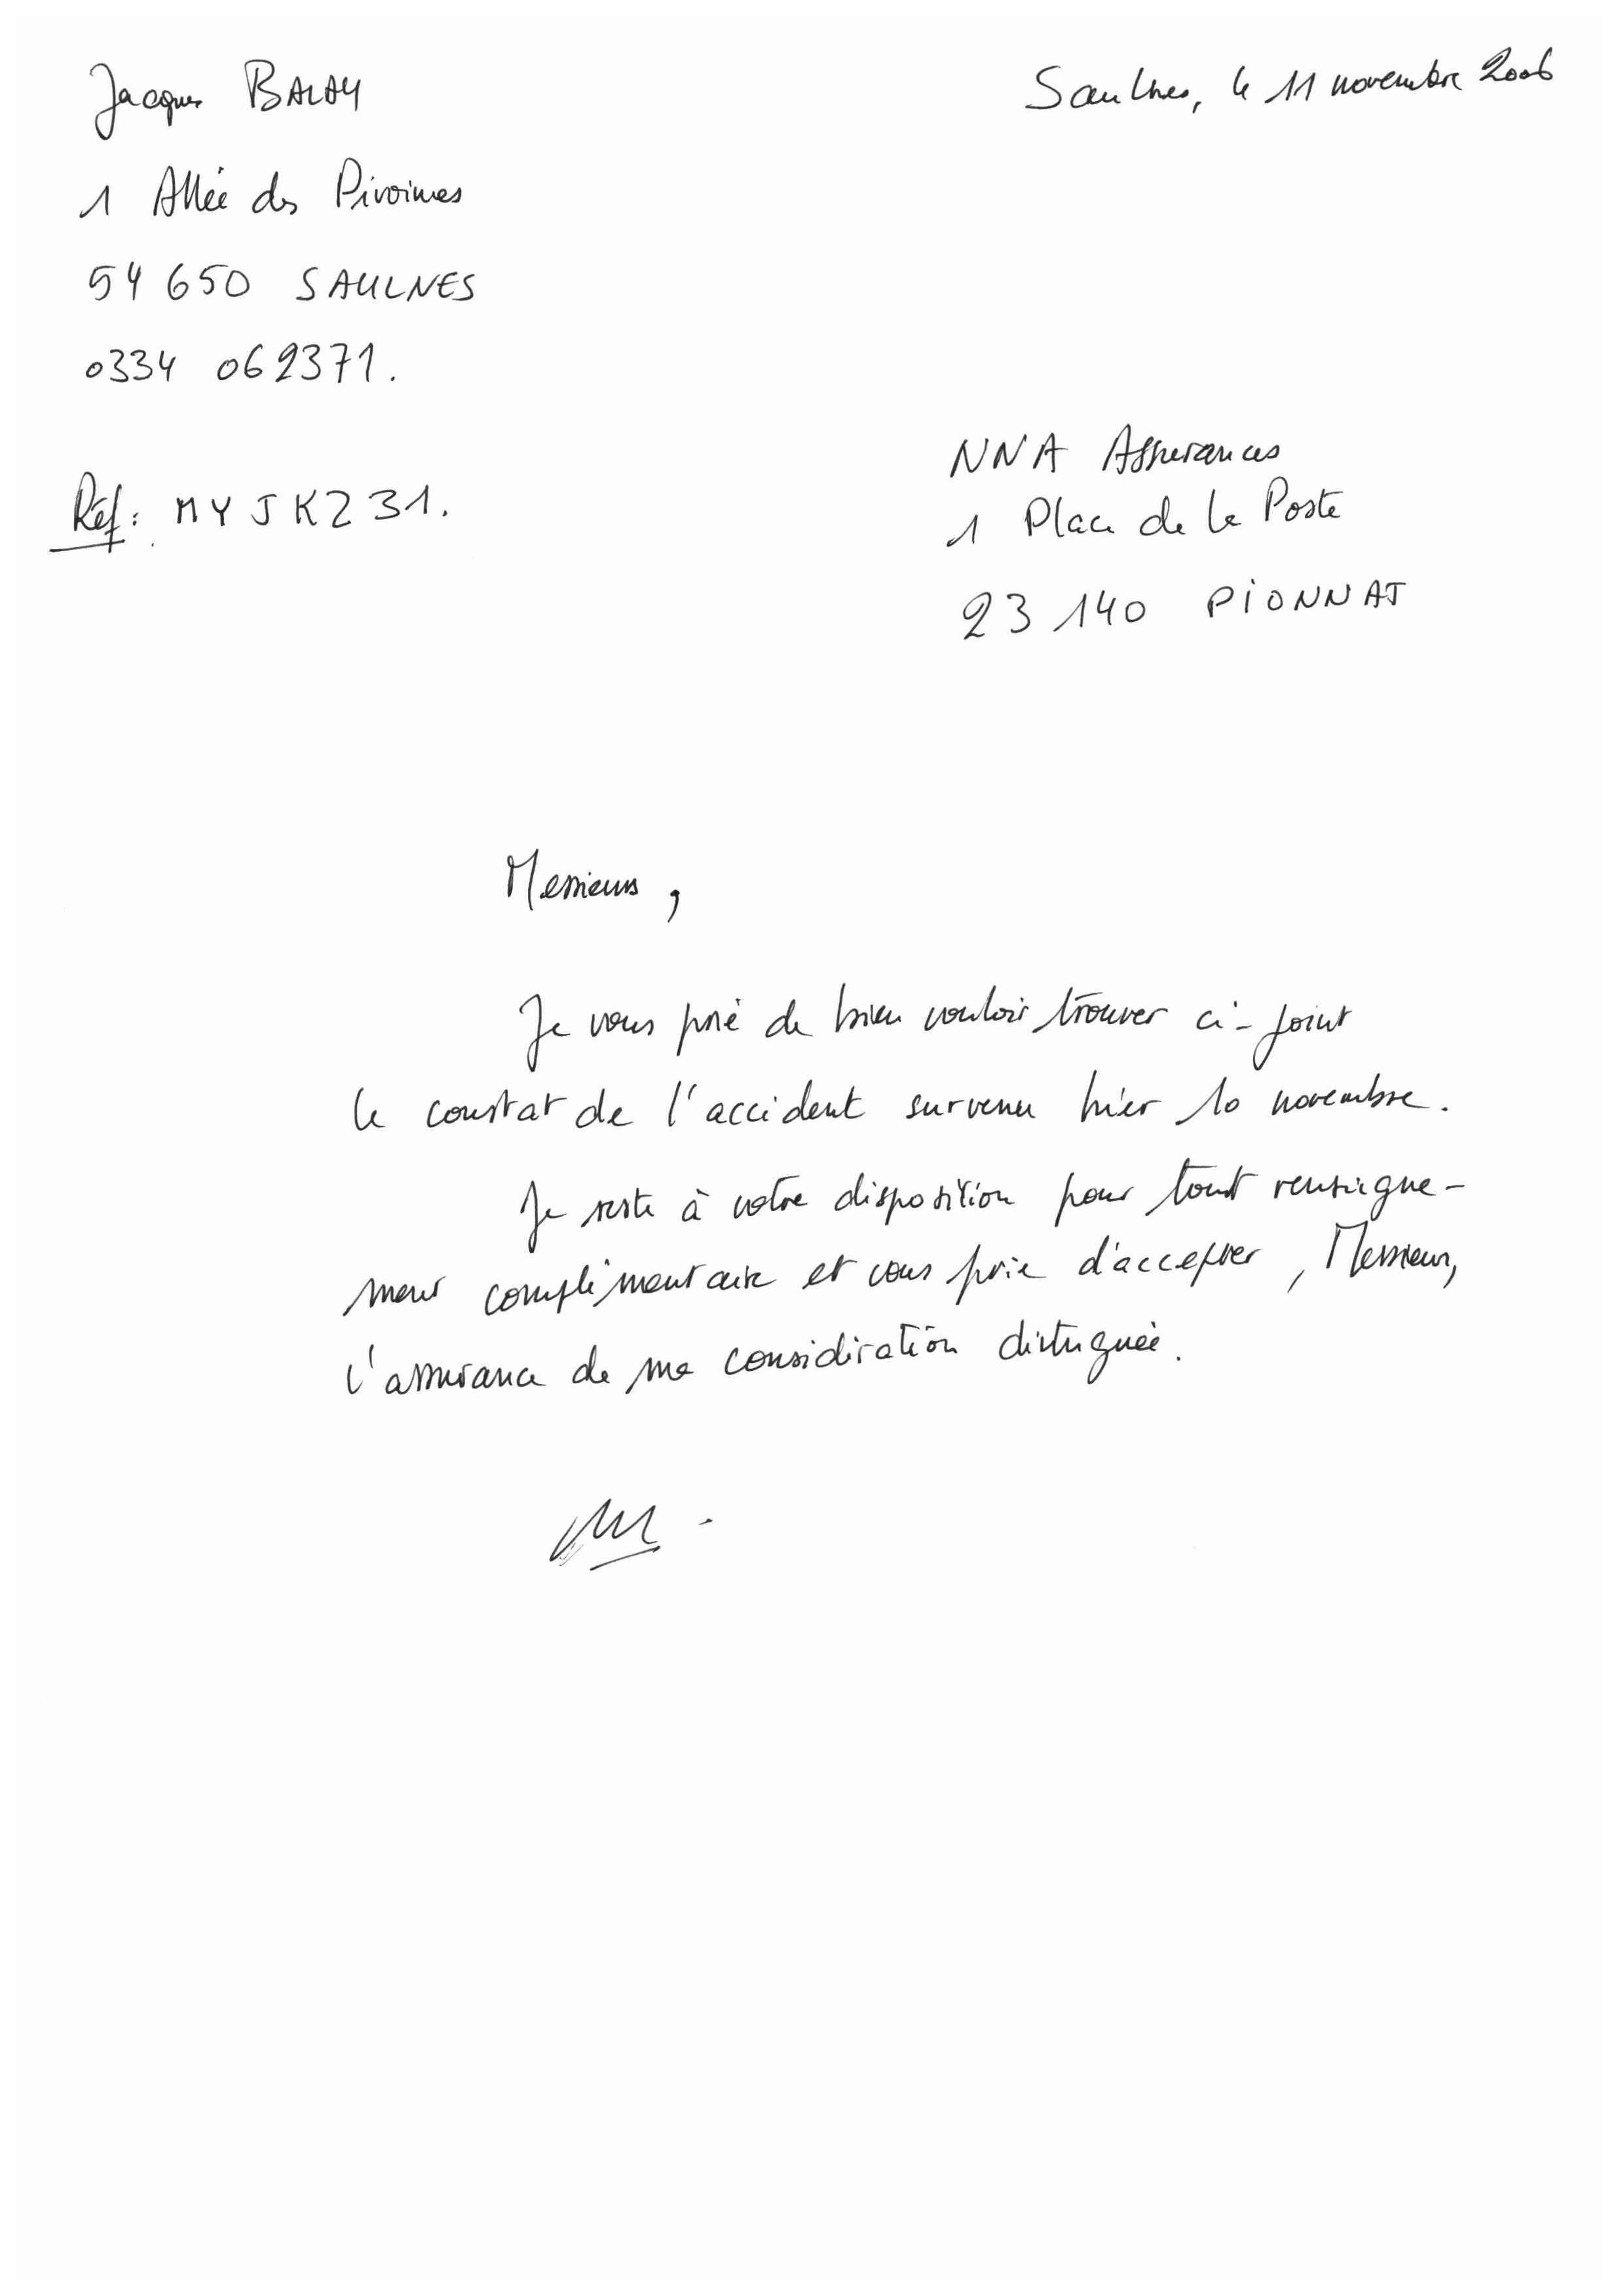 Jacques BALAY
Saulnes, le 11 novembre 2006
1 Allée des Pivoines
54 650 SAULNES
0334 062371.
NNA Assurances
Réf: MYJKZ31.
1 Place de la Poste
23 140 PIONNAT
Messieurs,
Je vous prie de bien vouloir trouver ci-joint
le constat de l'accident survenu hier 10 novembre.
Je reste à votre disposition pour tout renseigne-
ment complémentaire et vous prie d'accepter, Messieurs,
l'assurance de ma considération distinguée.